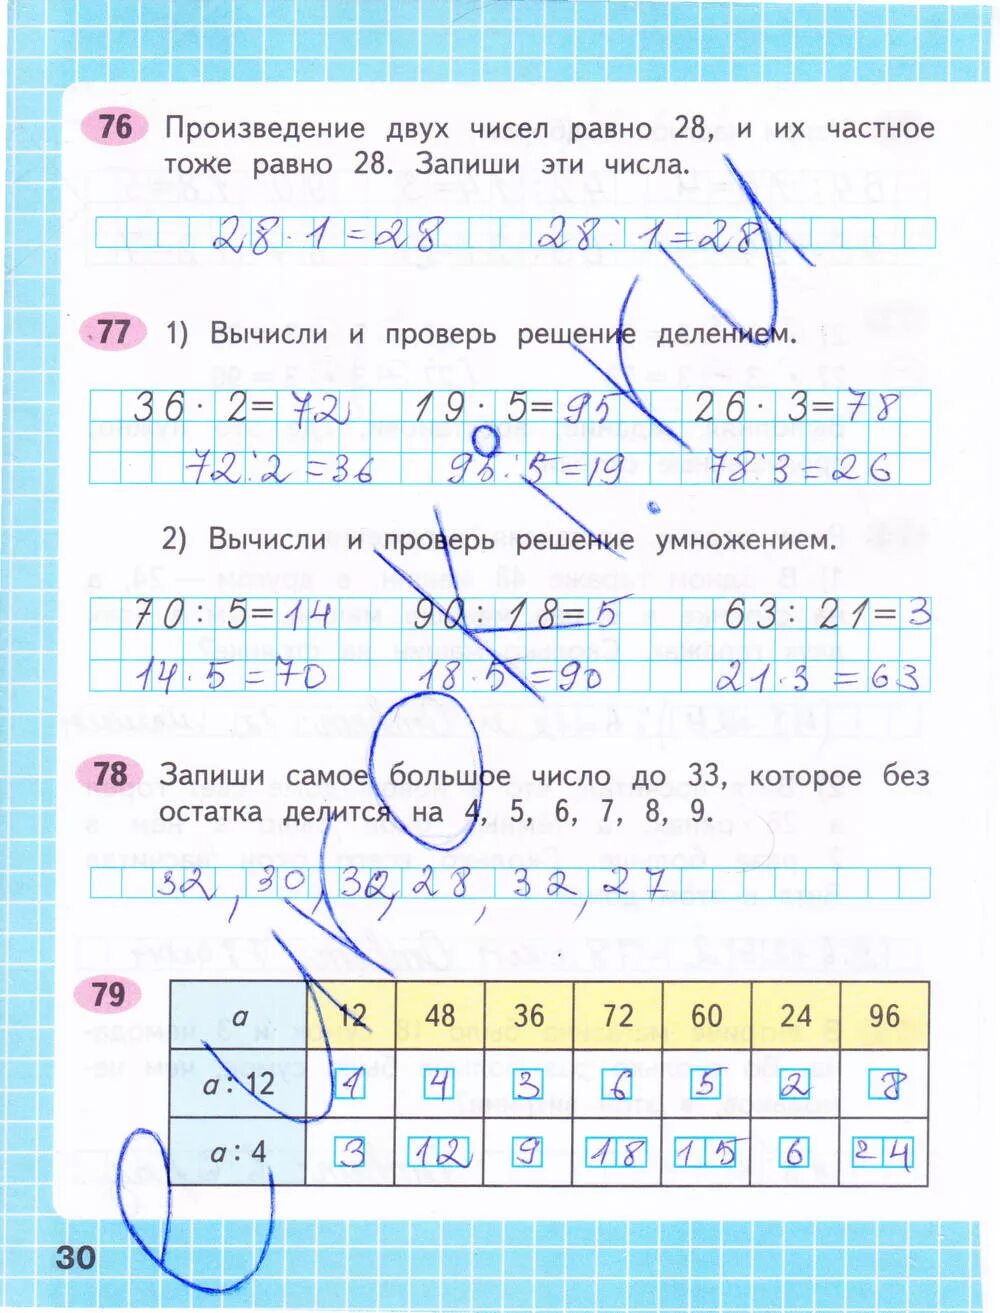 76 Произведение двух чисел равно 28, и их частное
тоже равно 28. Запиши эти числа.
28 · 1 = 28 28 : 1 = 28
77 1) Вычисли и проверь решение делением.
36 · 2 = 72 19 · 5 = 95 26 · 3 = 78
72 : 2 = 36 95 : 5 = 19 78 : 3 = 26
2) Вычисли и проверь решение умножением.
70 : 5 = 14 90 : 18 = 5 63 : 21 = 3
14 · 5 = 70 18 · 5 = 90 21 · 3 = 63
78 Запиши самое большое число до 33, которое без
остатка делится на 4, 5, 6, 7, 8, 9.
32, 30, 30, 28, 32, 27
79 a 12 48 36 72 60 24 96
a : 12 1 4 3 6 5 2 8
a : 4 3 12 9 18 15 6 24
30